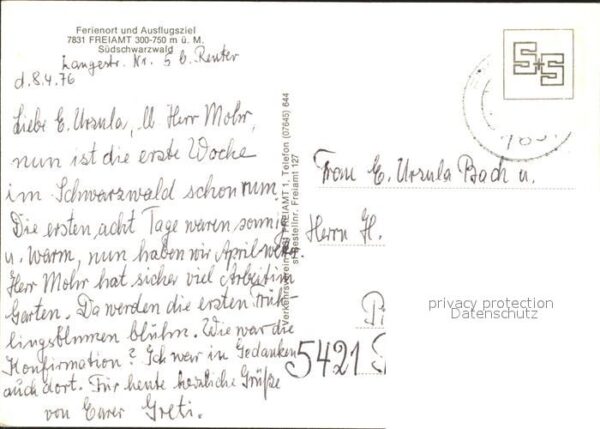 Ferienort und Ausflugsziel
7831 FREIAMT 300-750 m ü. M.
Südschwarzwald
Langestr. Nr. 5 b. Reuter
d. 8.4.76
Liebe E. Ursula, u Herr Mohr,
nun ist die erste Woche
im Schwarzwald schon rum.
Die ersten acht Tage waren sonnig
u. warm, nun haben wir Aprilwetter
Herr Mohr hat sicher viel Arbeit im
Garten. Da werden die ersten Früh-
lingsblumen blühn. Wie war die
Konfirmation? Ich war in Gedanken
auch dort. Für heute herzliche Grüße
von Eurer Greti.
Verkehrsverein FREIAMT 1, Telefon (07645) 644
Bestellnr. Freiamt 127
S+S
Frau E. Ursula Bach u.
Herrn H.
5421
privacy protection
Datenschutz